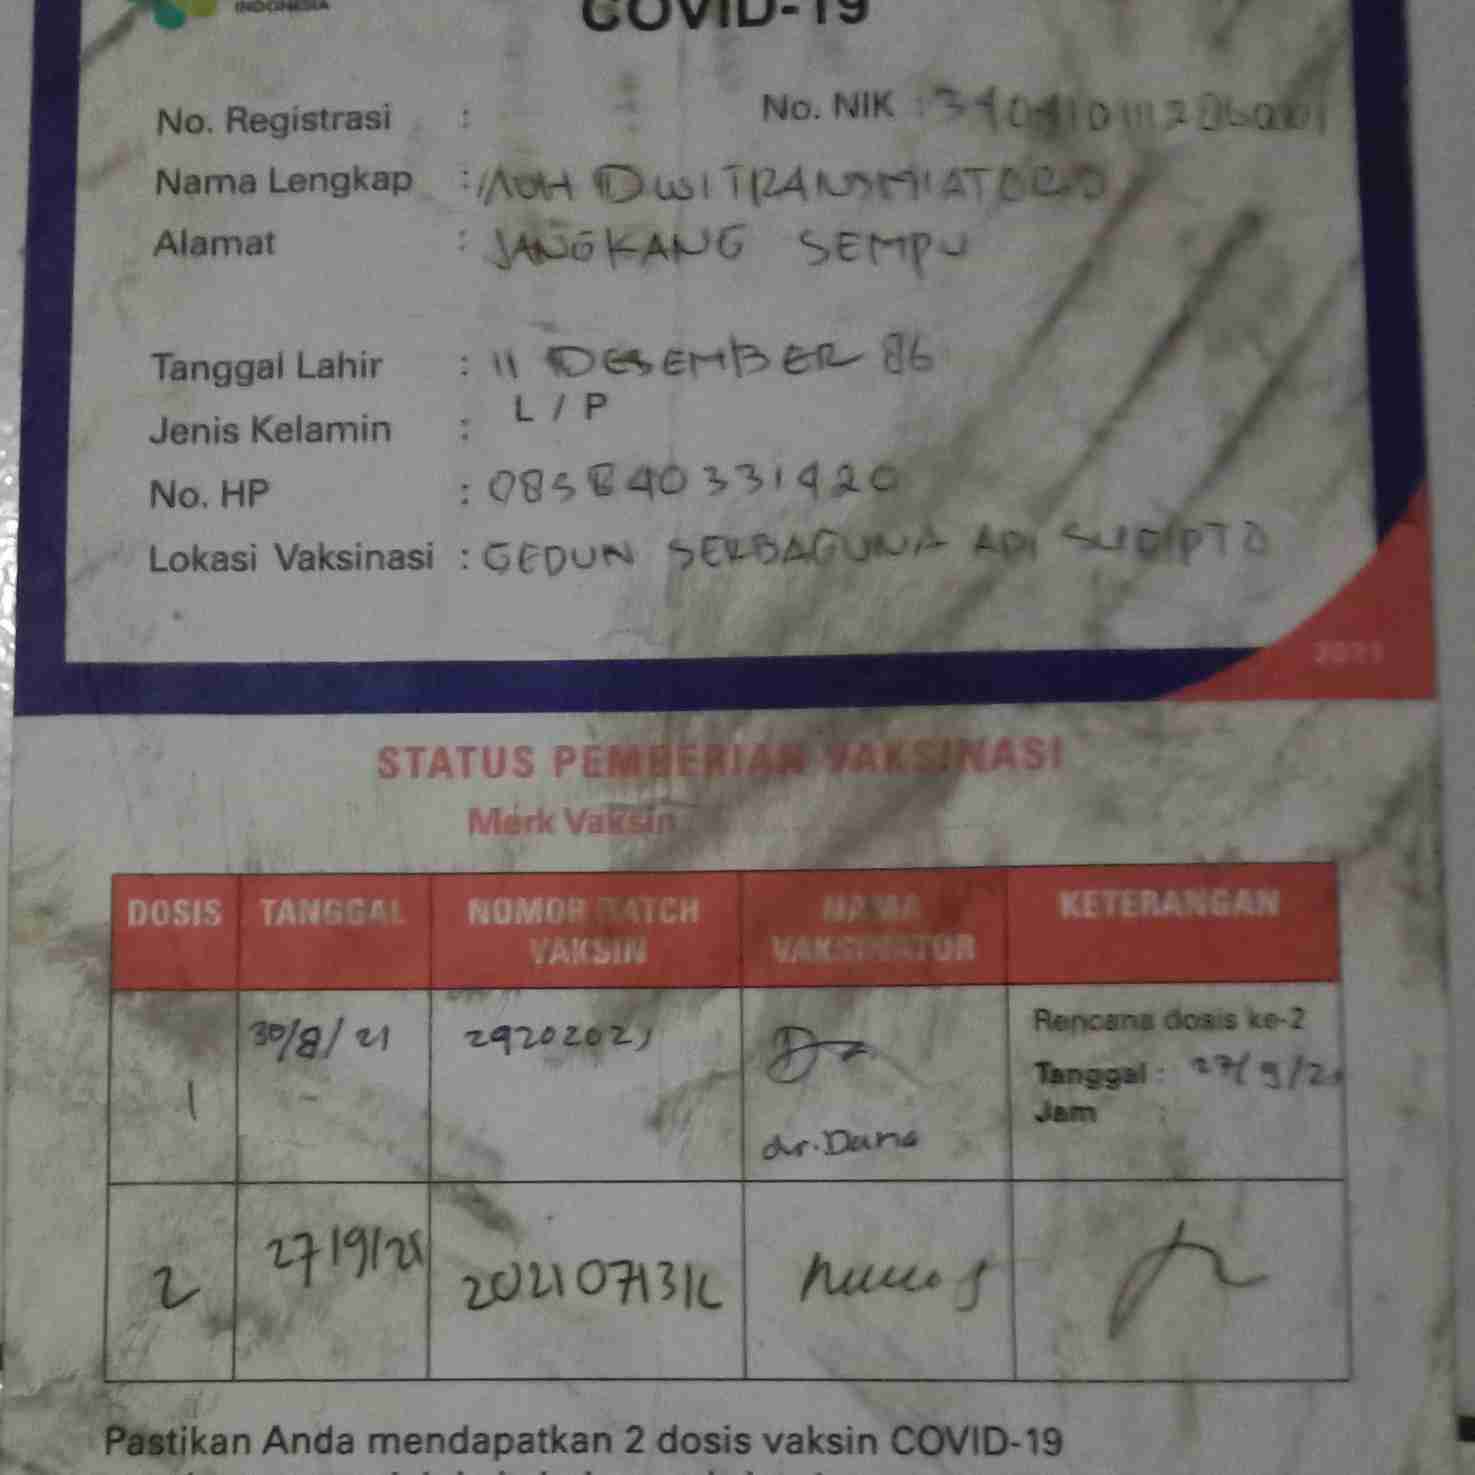 INDONESIA
COVID-19
No. Registrasi : No. NIK :
Nama Lengkap : MOH DWI TRANSMIATORO
Alamat : JANGKANG SEMPU
Tanggal Lahir : 11 DESEMBER 86
Jenis Kelamin : L / P
No. HP : 085840331920
Lokasi Vaksinasi : GEDUN SERBAGUNA ADI SUCIPTO
2021
STATUS PEMBERIAN VAKSINASI
Merk Vaksin
DOSIS TANGGAL NOMOR BATCH VAKSIN NAMA VAKSINATOR KETERANGAN
1 30/8/21 29202021 dr. Dana Rencana dosis ke-2
Tanggal : 27/9/21
Jam :
2 27/9/21 20210713K
Pastikan Anda mendapatkan 2 dosis vaksin COVID-19